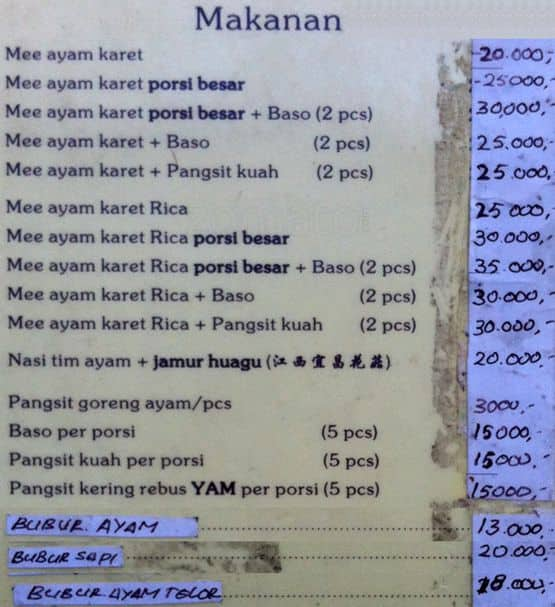 Makanan
Mee ayam karet -20.000,-
Mee ayam karet porsi besar -25000,-
Mee ayam karet porsi besar + Baso (2 pcs) 30,000,-
Mee ayam karet + Baso (2 pcs) 25.000,-
Mee ayam karet + Pangsit kuah (2 pcs) 25.000,-
Mee ayam karet Rica 25 000,-
Mee ayam karet Rica porsi besar 30.000,-
Mee ayam karet Rica porsi besar + Baso (2 pcs) 35.000,-
Mee ayam karet Rica + Baso (2 pcs) 30.000,-
Mee ayam karet Rica + Pangsit kuah (2 pcs) 30.000,-
Nasi tim ayam + jamur huagu (江西宜昌花菇) 20.000,-
Pangsit goreng ayam/pcs 3000,-
Baso per porsi (5 pcs) 15000,-
Pangsit kuah per porsi (5 pcs) 15000,-
Pangsit kering rebus YAM per porsi (5 pcs) 15000,-
BUBUR. AYAM 13.000,-
BUBUR SAPI 20.000,-
BUBUR AYAM TELOR 18.000,-